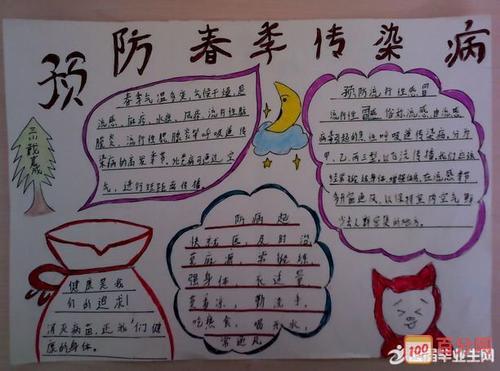 预防春季传染病
春季气温多变,气候干燥是
流感、麻疹、水痘、风疹、流行性腮
腺炎、流行性脑脊髓膜炎等呼吸道传
染病的高发季节,此类病可通过空
气,进行短距离传播。
预防流行性感冒
流行性感冒俗称流感,由流感
病毒引起的急性呼吸道传染病,分为
甲、乙、丙三型,以飞沫传播,我们应该
经常锻炼身体,增强体质,在流感季节
多开窗通风,以保持室内空气新
少去人群密集的地方。
防病起
快就医,及时治
莫麻痹,常锻炼,
强身体,衣适量
莫着凉,勤洗手,
吃熟食,喝开水,
常通风
健康是我
们的追求!
消灭病苗,还我们健
康的身体。
100
百分网